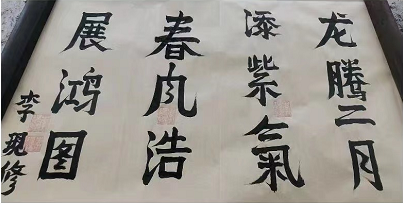 龙腾二月
添紫氣
春风浩
展鸿图
李现修